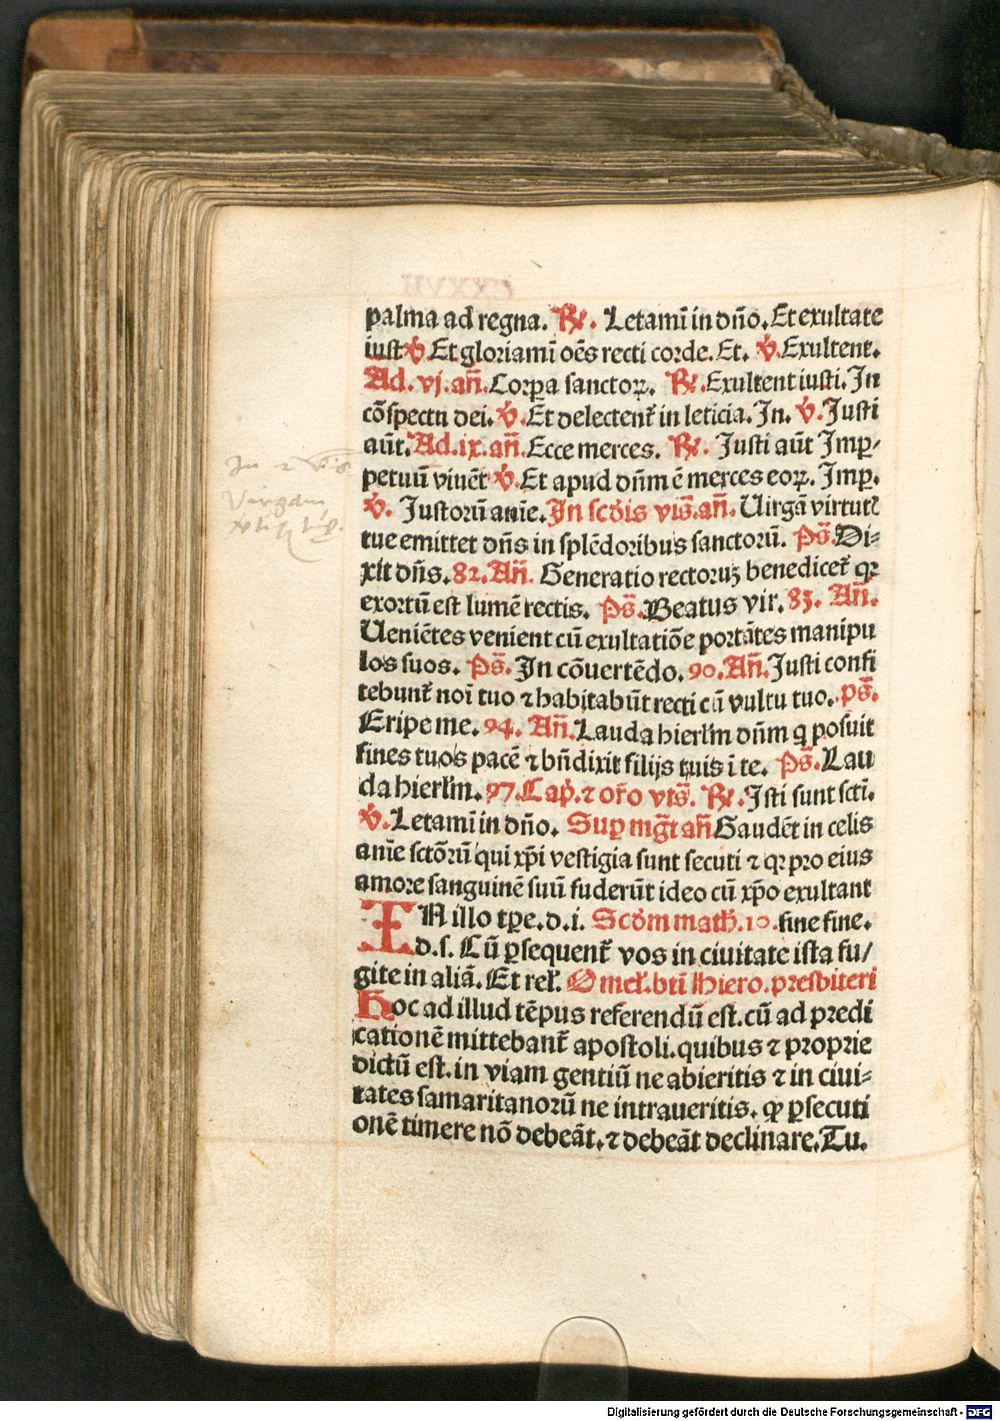 palma ad regna. ℟. Letami᷑ in dn̄o. Et exultate
iusti ℣. Et gloriami᷑ oēs recti corde. Et. ℣. Exultent.
Ad. vj. an̄. Corꝑa sanctoꝝ. ℟. Exultent iusti. In
cōspectu dei. ℣. Et delectent᷑ in leticia. In. ℣. Justi
aūt. Ad. ix. an̄. Ecce merces. ℟. Justi aūt Imꝑ-
petuū viuēt ℣. Et apud dn̄m ē merces eoꝝ. Imꝑ.
℣. Justorū anīe. In scd̓is vis̄. an̄. Uirgā virtut᷑
tue emittet dn̄s in splēdoribus sanctorū. Ps̄. Di-
xit dn̄s. 82. An̄. Generatio rectoruꝫ benedicet᷑ qꝛ
exortū est lumē rectis. Ps̄. Beatus vir. 83. An̄.
Ueniētes venient cū exultatiōe portātes manipu
los suos. Ps̄. In cōuertēdo. 90. An̄. Justi confi
tebunt᷑ noī tuo ⁊ habitabūt recti cū vultu tuo. ps̄.
Eripe me. 94. An̄. Lauda hierl̄m dn̄m q posuit
fines tuos pacē ⁊ bn̄dixit filijs tuis ī te. Ps̄. Lau
da hierl̄m. 97. Cap̓. ⁊ or̄o vts̄. ℟. Isti sunt sct̄i.
℣. Letami᷑ in dn̄o. Suꝑ mḡt an̄ Gaudēt in celis
anīe sctōrū qui xp̄i vestigia sunt secuti ⁊ qꝛ pro eius
amore sanguinē suū fuderūt ideo cū xp̄o exultant
IN illo tꝑe. d. i. Scd̓m math̓. 10. sine fine.
d. s. Cū ꝑsequent᷑ vos in ciuitate ista fu/
gite in aliā. Et rel̓. Omel̓. btī Hiero. presbiteri
Hoc ad illud tēpus referendū est. cū ad predi
cationē mittebant᷑ apostoli. quibus ⁊ proprie
dictū est. in viam gentiū ne abieritis ⁊ in ciui-
tates samaritanorū ne intraueritis. ꝙ ꝑsecuti
onē timere nō debeāt. ⁊ debeāt declinare. Tu.
Virgam
Digitalisierung gefördert durch die Deutsche Forschungsgemeinschaft - DFG